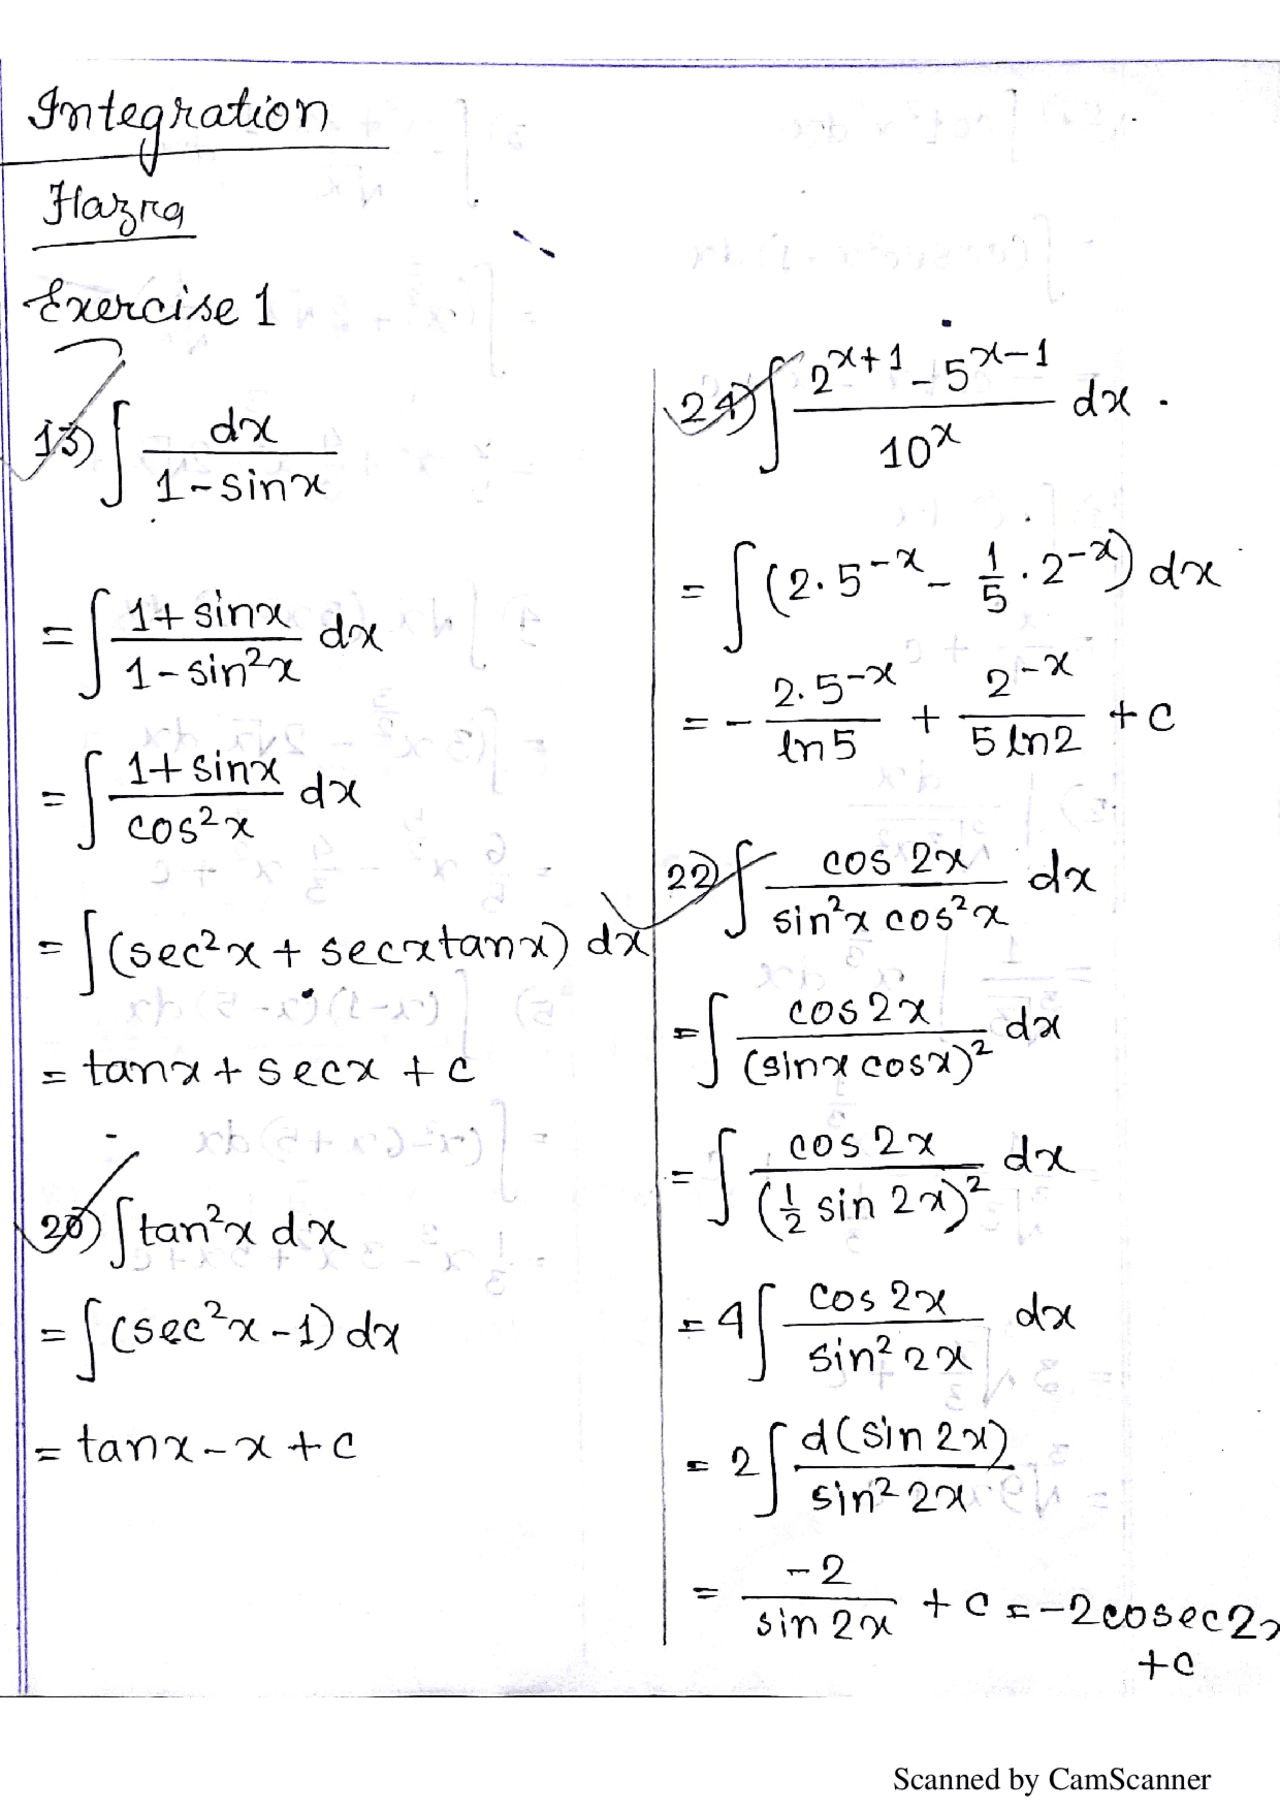 Integration
Hazra
Exercise 1
13) ∫ dx / (1 - sinx)
= ∫ (1 + sinx) / (1 - sin²x) dx
= ∫ (1 + sinx) / cos²x dx
= ∫ (sec²x + secxtanx) dx
= tanx + secx + c
20) ∫ tan²x dx
= ∫ (sec²x - 1) dx
= tanx - x + c
24) ∫ (2^(x+1) - 5^(x-1)) / 10^x dx .
= ∫ (2.5^(-x) - 1/5 . 2^(-x)) dx
= - 2.5^(-x) / ln5 + 2^(-x) / 5 ln2 + c
22) ∫ cos 2x / (sin²x cos²x) dx
= ∫ cos 2x / (sinx cosx)² dx
= ∫ cos 2x / (1/2 sin 2x)² dx
= 4 ∫ cos 2x / sin² 2x dx
= 2 ∫ d(sin 2x) / sin² 2x
= -2 / sin 2x + c = -2cosec2x
+c
Scanned by CamScanner